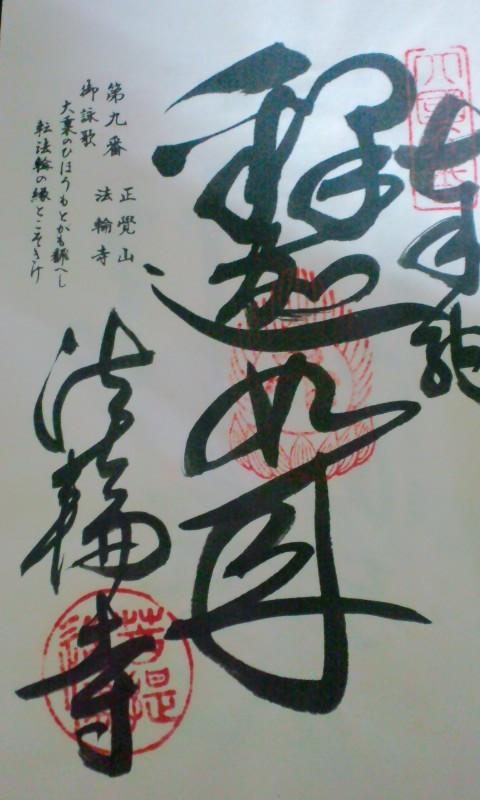 奉納
釋迦如来
第九番 正覺山
法輪寺
御詠歌
大乗のひほうもとかも飜へし
転法輪の縁とこそきけ
法輪寺